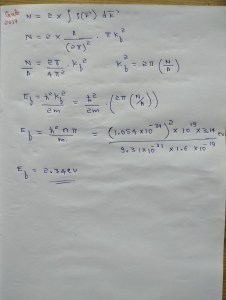 N = 2 × ∫ f(k) dk
N = 2 × A/(2π)² · π kf²
N/A = 2π/4π² · kf² kf² = 2π (N/A)
Ef = ħ² kf²/2m = ħ²/2m · (2π (N/A))
Ef = ħ² n π/m = (1.054 × 10⁻³⁴)² × 10¹⁹ × 3.14 / 9.31 × 10⁻³¹ × 1.6 × 10⁻¹⁹
Ef = 2.34 eV